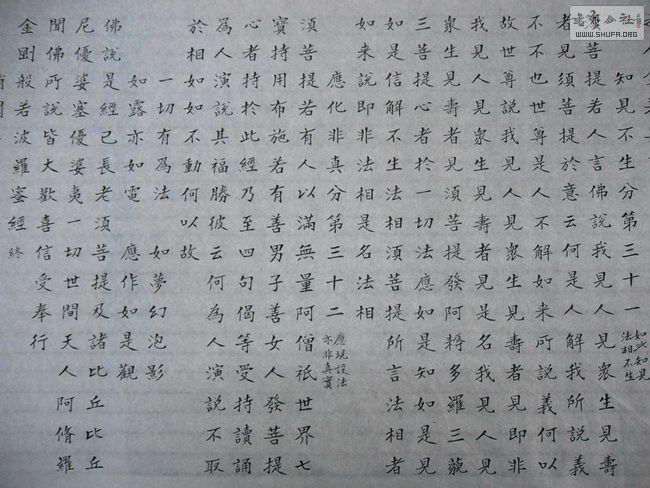 知見不生分第三十一 如此知見 法相不生
菩提若人言佛說我見人見眾生見壽
者見須菩提於意云何是人解我所說義
不也世尊是人不解如來所說義何以
故世尊說我見人見眾生見壽者見即非
我見人見眾生見壽者見是名我見人見
眾生見壽者見須菩提發阿耨多羅三藐
三菩提心者於一切法應如是知如是見
如是信解不生法相須菩提所言法相者
如來說即非法相是名法相
應化非真分第三十二 應現設法 亦非真實
須菩提若有人以滿無量阿僧祇世界七
寶持用布施若有善男子善女人發菩提
心者持於此經乃至四句偈等受持讀誦
為人演說其福勝彼云何為人演說不取
於相如如不動何以故
一切有為法 如夢幻泡影
如露亦如電 應作如是觀
佛說是經已長老須菩提及諸比丘比丘
尼優婆塞優婆夷一切世間天人阿脩羅
聞佛所說皆大歡喜信受奉行
金剛般若波羅蜜經 終
WWW.SHUFA.ORG